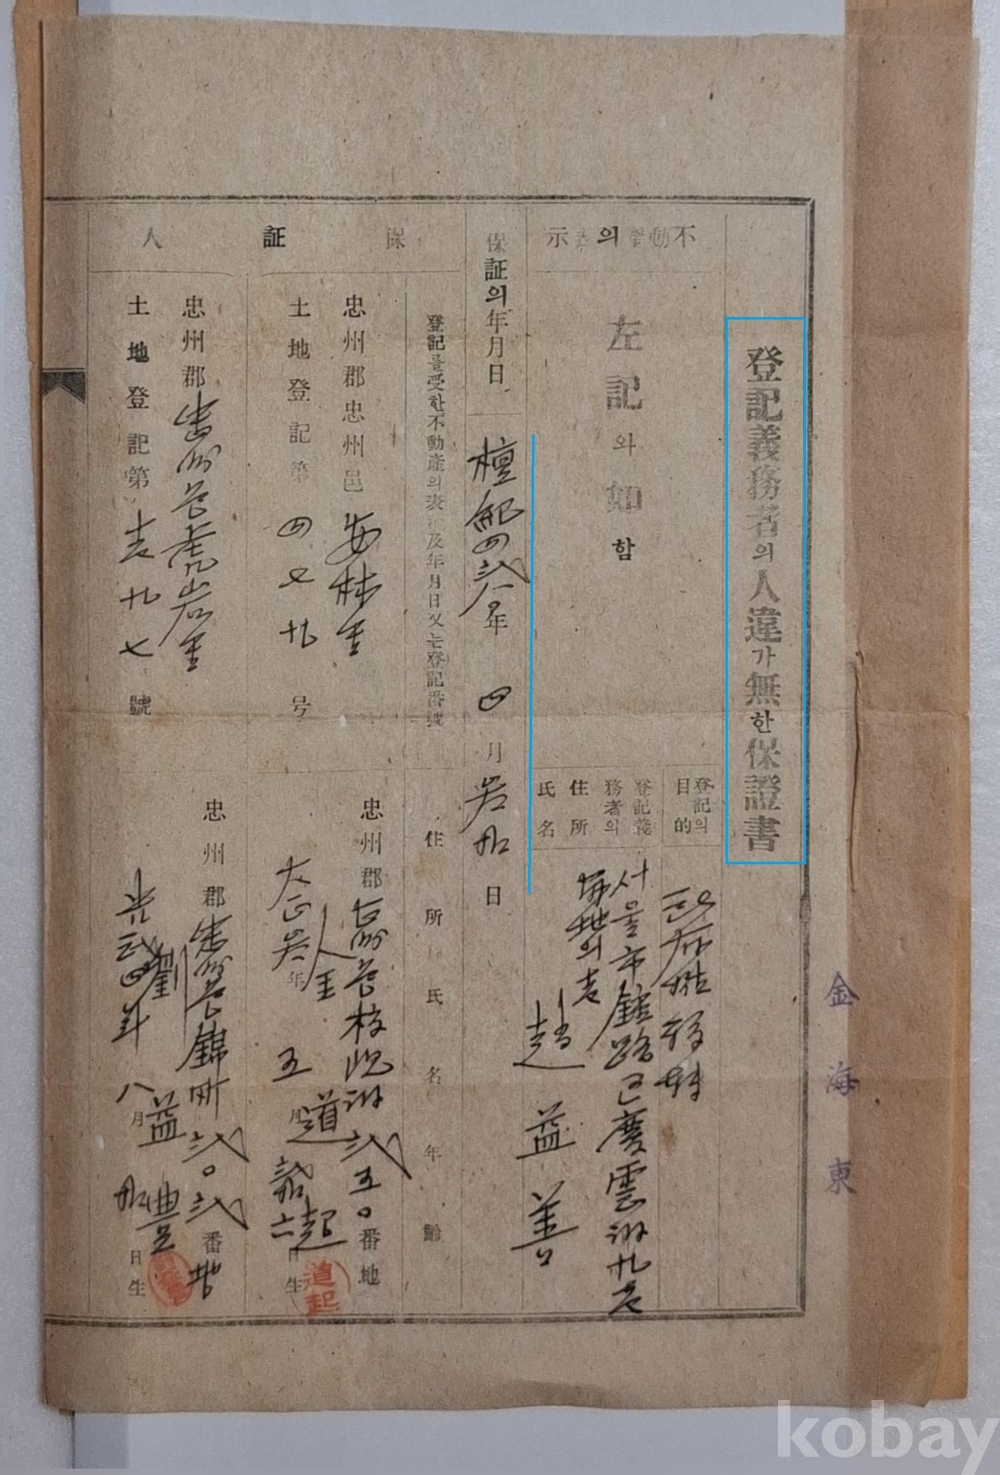 登記義務者의人違가無한保證書
不動産의表示
左記와如함
登記의目的
登記義務者의住所氏名
서울市鍾路區慶雲洞九六
番地의壱
趙益善
保証의年月日
檀紀四弐八年四月日
保証人
登記를受한不動産의表示及年月日又는登記番號
住所氏名年齡
忠州郡忠州邑安林里
土地登記第四七九号
忠州郡忠州邑校峴洞弐五〇番地
大正年五月六日生
道起
道起
忠州郡忠州邑虎岩里
土地登記第壱九七號
忠州郡忠州邑錦町弐〇弐番地
劉益豊
光武四年八月日生
金海東
kobay